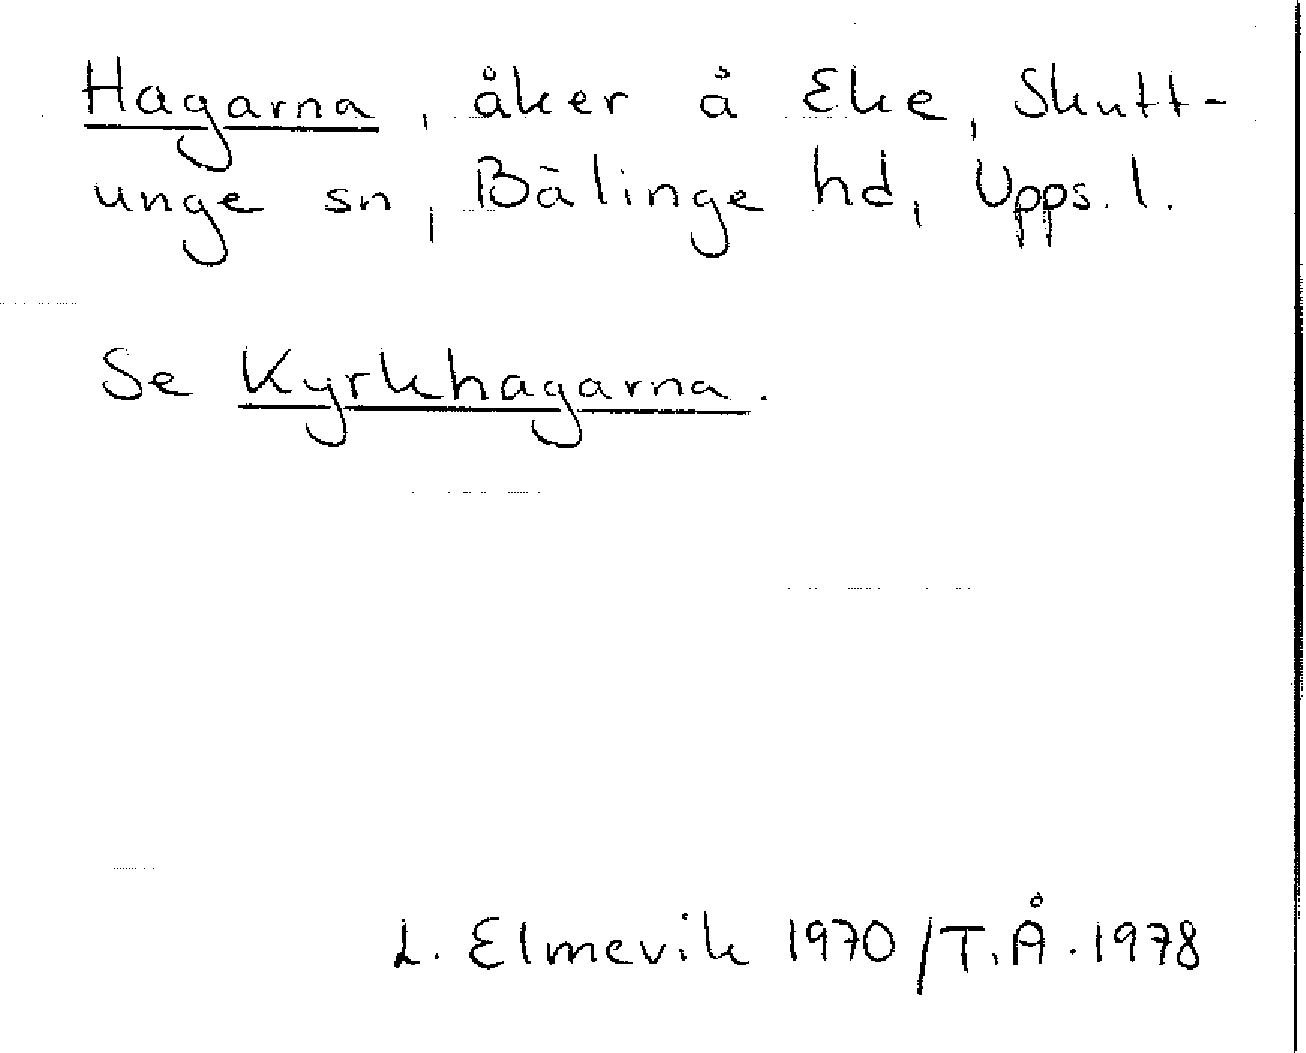 Hagarna, åker å Eke, Skutt-
unge sn, Bälinge hd, Upps. l.
Se Kyrkhagarna.
L. Elmevik 1970/T.Å. 1978